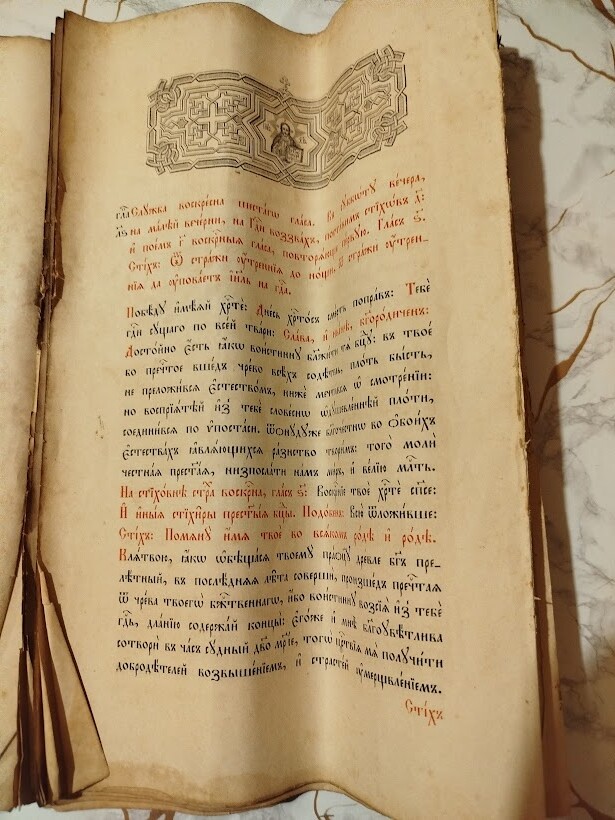 Слꙋжба воскре́сна шеста́гѡ гла́са. Въ сꙋббѡ́тꙋ ве́чера,
на ма́лѣй вече́рни, на гдⷭ҇и воззва́хъ, поста́вимъ стїхѡ́въ д҃:
и҆ пое́мъ г҃ воскрⷭ҇ныѧ гла́са, повторѧ́юще пе́рвꙋю. Гла́съ ѕ҃.
Стїхъ: Ѿ стра́жи ᲂу҆́треннїѧ до но́щи, ѿ стра́жи ᲂу҆́трен-
нїѧ да ᲂу҆пова́етъ і҆и҃ль на гдⷭ҇а.
Побѣ́дꙋ и҆мѣ́ѧй хрⷭ҇те́: Дне́сь хрⷭ҇то́съ сме́рть попра́въ: Тебѐ
гдⷭ҇и сꙋ́щаго по все́й тва́ри: Сла́ва, и҆ ны́нѣ, бг҃оро́диченъ:
Досто́йно є҆́сть ꙗ҆́кѡ вои́стиннꙋ блажи́ти тѧ̀ бцⷣꙋ: въ твоѐ
во пречⷭ҇тое вше́дъ чре́во всѣ́хъ содѣ́тель, пло́ть бы́сть,
не преложи́всѧ є҆стество́мъ, нижѐ мечта́всѧ ѿ смотре́нїи:
но воспрїѧ́тѣй и҆з̾ тебѐ слове́снѡ ѡ҆дꙋшевле́ннѣй пло́ти,
соедини́всѧ по ѵ҆поста́си. ѿѻнꙋ́дꙋже благоче́стнѡ во ѻ҆бои́хъ
є҆стества́хъ ꙗ҆влѧ́ющихсѧ ра́знство твори́мъ: того̀ молѝ
честна́ѧ прест҃а́ѧ, низпосла́ти на́мъ ми́ръ, и҆ ве́лїю млⷭ҇ть.
На стїхо́внѣ стїхи́ра воскрⷭ҇на, гла́съ ѕ҃: Воскрⷭ҇нїе твоѐ хрⷭ҇тѐ сп҃се:
И҆ и҆ны́ѧ стїхи̑ры прест҃ы́ѧ бцⷣы. Подо́бенъ: Всѝ ѿложи́вше:
Стїхъ: Помѧнꙋ̀ и҆́мѧ твоѐ во всѧ́комъ ро́дѣ и҆ ро́дѣ.
Клѧ́твою, ꙗ҆́кѡ ѡ҆бѣща́сѧ твоемꙋ̀ пра́ѻцꙋ дре́вле бг҃ъ пре-
лѣ́тный, въ послѣ́днѧѧ лѣ̑та соверши̑, произше́дъ пречⷭ҇таѧ
ѿ чре́ва твоегѡ̀ бжⷭ҇твеннагѡ, и҆́бо вои́стиннꙋ возсїѧ̀ и҆з̾ тебѐ
гдⷭ҇ь, дла́нїю содержа́й концы̀: є҆го́же и҆ мнѣ̀ благоꙋвѣ́тлива
сотворѝ въ ча́съ сꙋ́дный дв҃о мр҃і́е, тогѡ̀ црⷭ҇твїѧ мѧ̀ полꙋчи́ти
добродѣ́телей возвыше́нїемъ, и҆ страсте́й ᲂу҆мерщвле́нїемъ.
Стїхъ